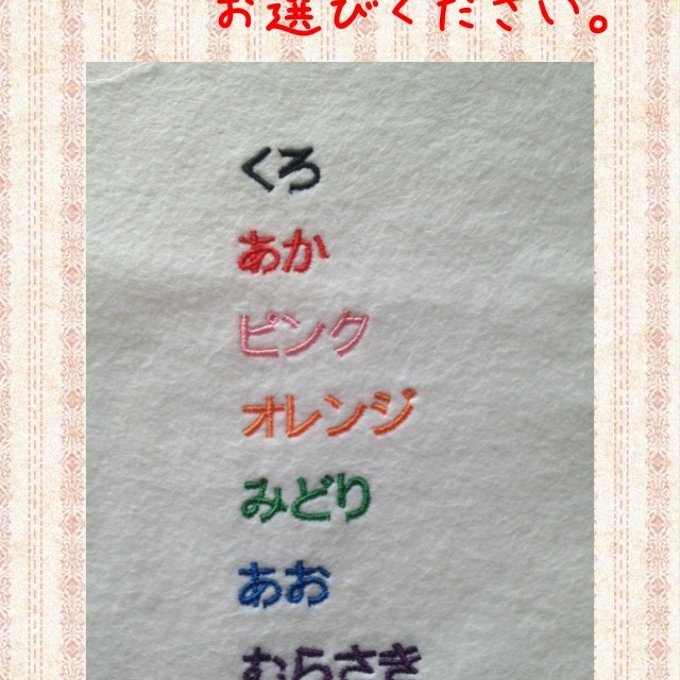 お選びください。
くろ
あか
ピンク
オレンジ
みどり
あお
むらさき